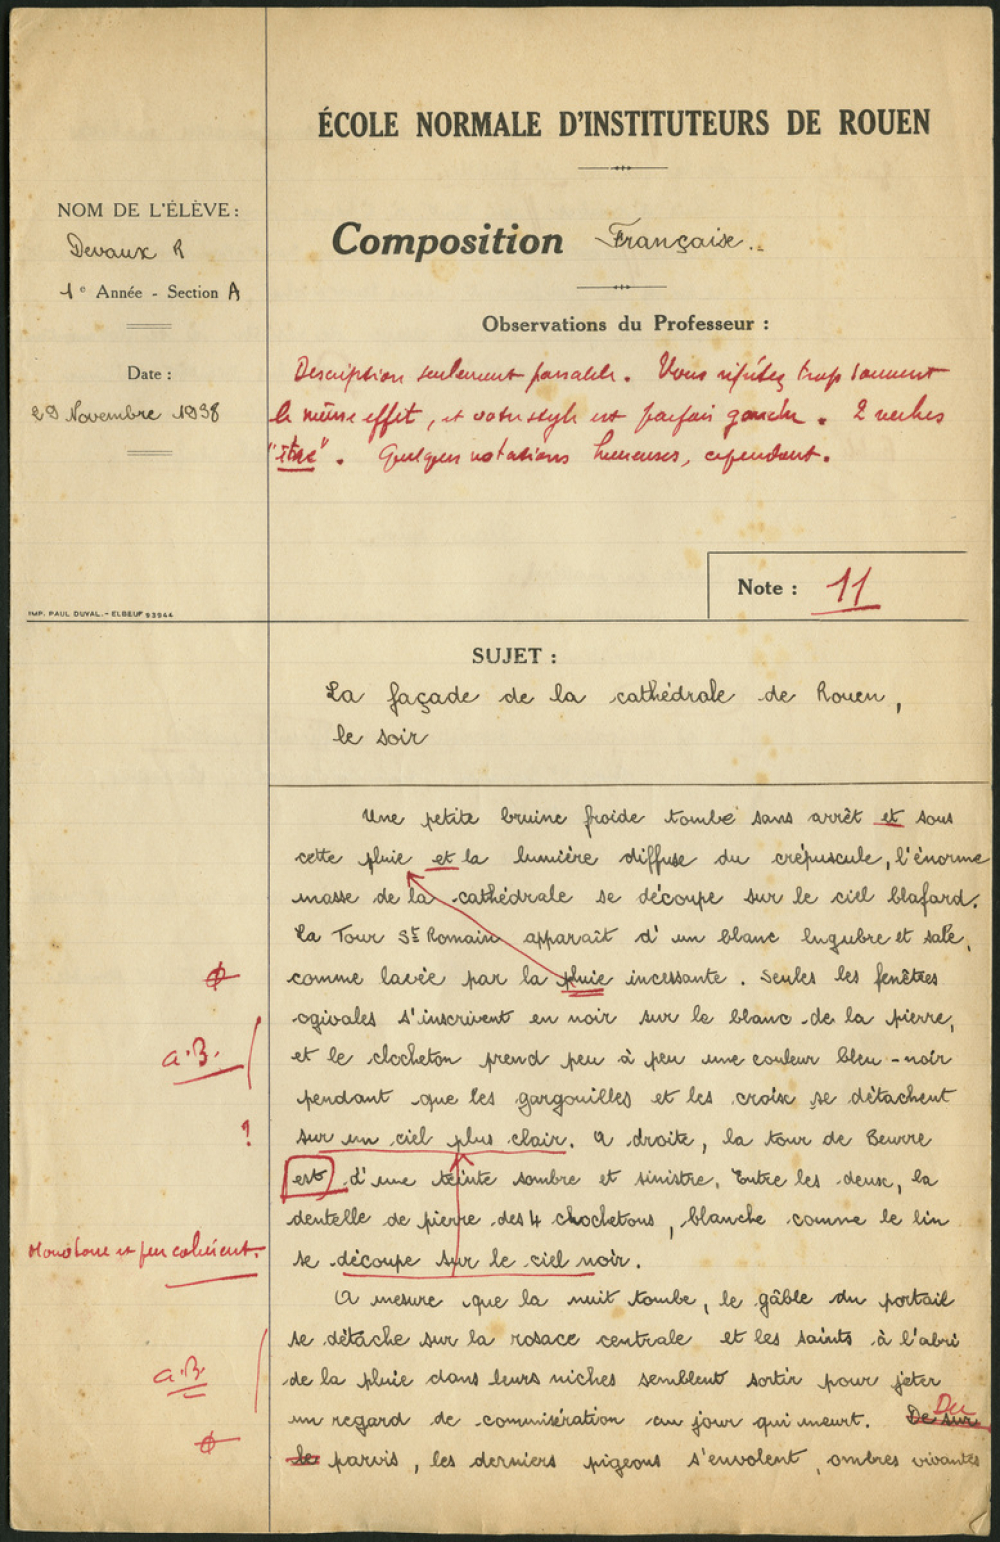 ÉCOLE NORMALE D'INSTITUTEURS DE ROUEN
NOM DE L'ÉLÈVE:
Devaux R
1e Année - Section A
Date :
29 Novembre 1938
Composition Française.
Observations du Professeur :
Description seulement passable. Vous répétez trop souvent
le même effet, et votre style est parfois gauche. 2 verbes
"être". Quelques notations heureuses, cependant.
Note : 11
IMP. PAUL DUVAL. - ELBEUF 93944
SUJET :
La façade de la cathédrale de Rouen,
le soir
Une petite bruine froide tombe sans arrêt et sous
cette pluie et la lumière diffuse du crépuscule, l'énorme
masse de la cathédrale se découpe sur le ciel blafard.
La Tour St Romain apparaît d'un blanc lugubre et sale,
comme lavée par la pluie incessante. Seules les fenêtres
ogivales s'inscrivent en noir sur le blanc de la pierre,
a.B.
et le clocheton prend peu à peu une couleur bleu-noir
pendant que les gargouilles et les croix se détachent
!
sur un ciel plus clair. A droite, la tour de Beurre
est d'une teinte sombre et sinistre. Entre les deux, la
dentelle de pierre des 4 chochetons, blanche comme le lin
Monotone et peu cohérent.
se découpe sur le ciel noir.
A mesure que la nuit tombe, le gâble du portail
se détache sur la rosace centrale et les saints à l'abri
a.B
de la pluie dans leurs niches semblent sortir pour jeter
un regard de commisération au jour qui meurt. De sur Du
le parvis, les derniers pigeons s'envolent, ombres vivantes